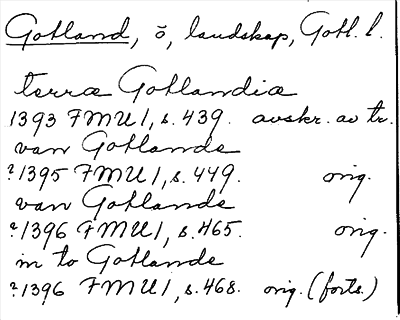 Gotland, ö, landskap, Gotl. l.
terræ Gotlandiæ
1393 FMU 1, s. 439. avskr. av tr.
van Gotlande
?1395 FMU 1, s. 449. orig.
van Gotlande
?1396 FMU 1, s. 465. orig.
in to Gotlande
?1396 FMU 1, s. 468. orig. (forts.)